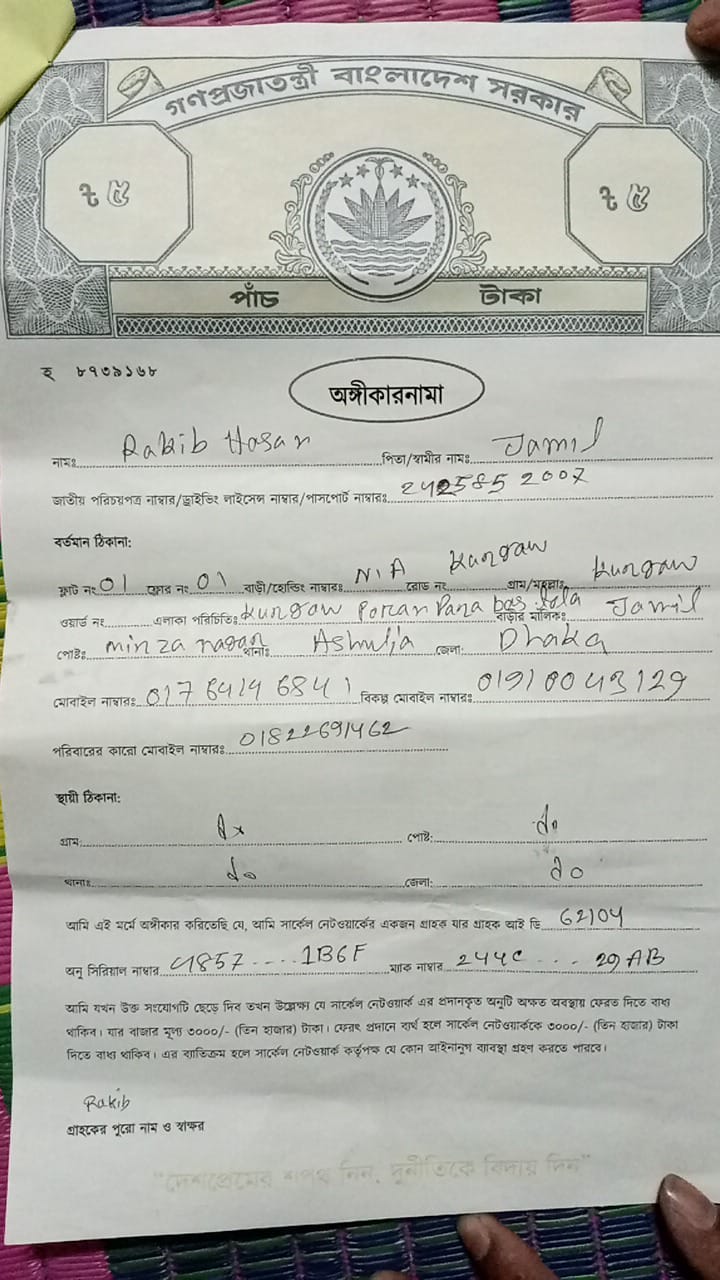 গণপ্রজাতন্ত্রী বাংলাদেশ সরকার
৳ ৫ ৳ ৫
পাঁচ টাকা
হ ৮৭৩৯১৬৮
অঙ্গীকারনামা
নামঃ Rakib Hasan পিতা/স্বামীর নামঃ Jamil
জাতীয় পরিচয়পত্র নাম্বার/ড্রাইভিং লাইসেন্স নাম্বার/পাসপোর্ট নাম্বারঃ 2425852007
বর্তমান ঠিকানা:
ফ্লাট নং 01 ফ্লোর নং 01 বাড়ী/হোল্ডিং নাম্বারঃ N/A রোড নং Kungaw গ্রাম/মহল্লাঃ Kungaw
ওয়ার্ড নং এলাকা পরিচিতিঃ Kungaw Poran Para bas tola বাড়ীর মালিকঃ Jamil
পোষ্টঃ minza nagan থানাঃ Ashulia জেলা: Dhaka
মোবাইল নাম্বারঃ 01764146841 বিকল্প মোবাইল নাম্বারঃ 01910043129
পরিবারের কারো মোবাইল নাম্বারঃ 01822691462
স্থায়ী ঠিকানা:
গ্রাম: পোষ্ট: do
থানাঃ do জেলা: do
আমি এই মর্মে অঙ্গীকার করিতেছি যে, আমি সার্কেল নেটওয়ার্কের একজন গ্রাহক যার গ্রাহক আই ডি 62104
অনু সিরিয়াল নাম্বার 4857 .... 1B6F ম্যাক নাম্বার 244C ... 29AB
আমি যখন উক্ত সংযোগটি ছেড়ে দিব তখন উল্লেক্ষ্য যে সার্কেল নেটওয়ার্ক এর প্রদানকৃত অনুটি অক্ষত অবস্থায় ফেরত দিতে বাধ্য
থাকিব। যার বাজার মূল্য ৩০০০/- (তিন হাজার) টাকা। ফেরৎ প্রদানে ব্যর্থ হলে সার্কেল নেটওয়ার্ককে ৩০০০/- (তিন হাজার) টাকা
দিতে বাধ্য থাকিব। এর ব্যতিক্রম হলে সার্কেল নেটওয়ার্ক কর্তৃপক্ষ যে কোন আইনানুগ ব্যবস্থা গ্রহণ করতে পারবে।
Rakib
গ্রাহকের পুরো নাম ও স্বাক্ষর
"দেশপ্রেমের শপথ নিন, দুর্নীতিকে বিদায় দিন"